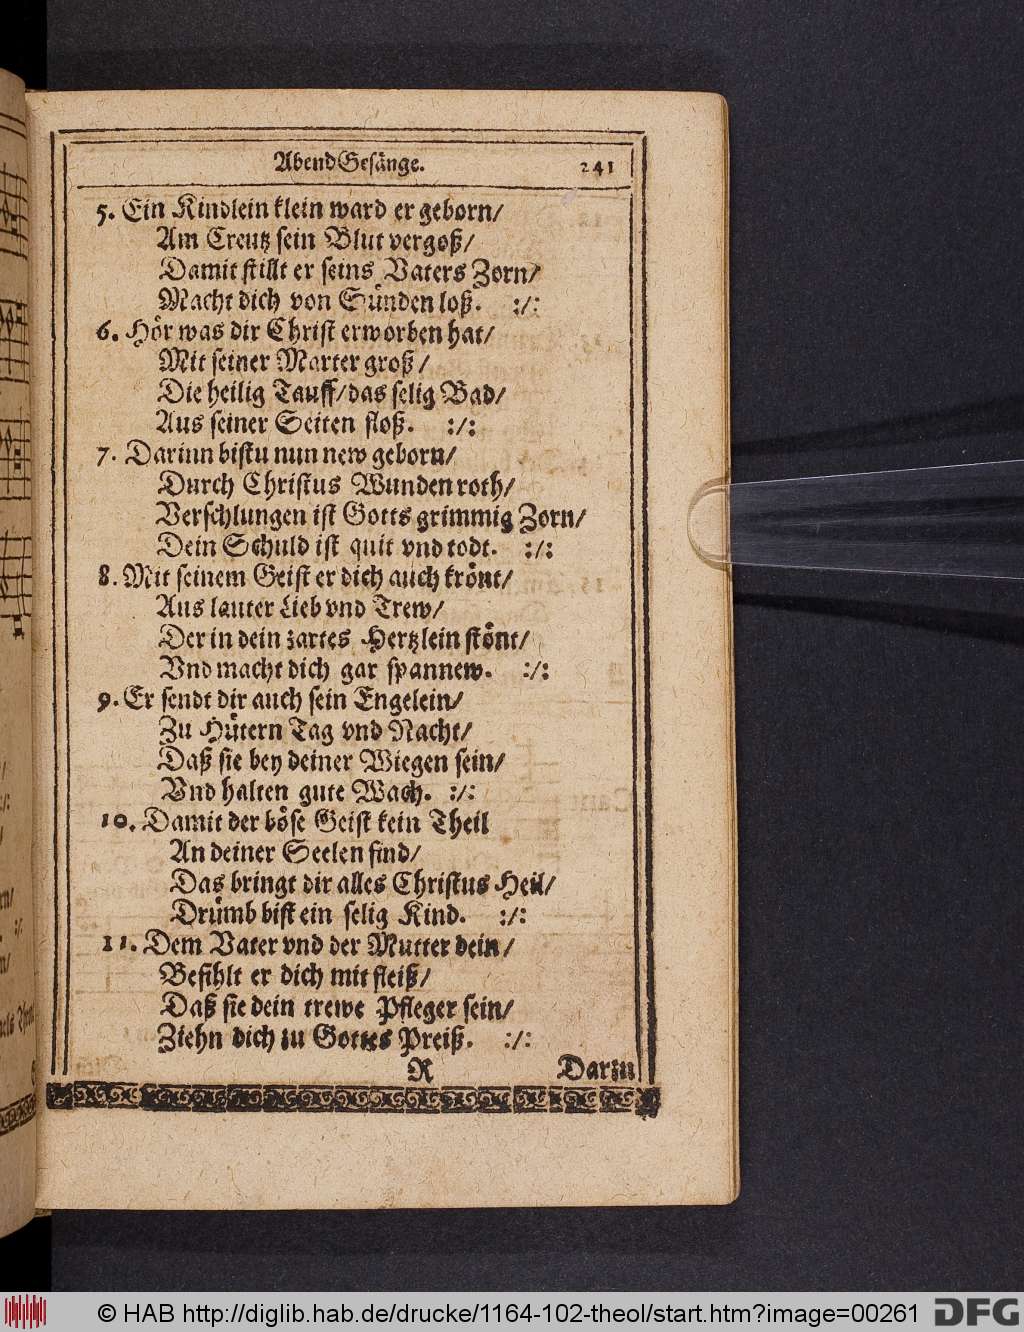 AbendGesänge. 241
5. Ein Kindlein klein ward er geborn/
Am Creutz sein Blut vergoß/
Damit stillt er seins Vaters Zorn/
Macht dich von Sünden loß. :/:
6. Hör was dir Christ erworben hat/
Mit seiner Marter groß/
Die heilig Tauff/das selig Bad/
Aus seiner Seiten floß. :/:
7. Darinn bistu nun new geborn/
Durch Christus Wunden roth/
Verschlungen ist Gotts grimmig Zorn/
Dein Schuld ist quit vnd todt. :/:
8. Mit seinem Geist er dich auch krönt/
Aus lauter Lieb vnd Trew/
Der in dein zartes Hertzlein stönt/
Vnd macht dich gar spannew. :/:
9. Er sendt dir auch sein Engelein/
Zu Hütern Tag vnd Nacht/
Daß sie bey deiner Wiegen sein/
Vnd halten gute Wach. :/:
10. Damit der böse Geist kein Theil
An deiner Seelen find/
Das bringt dir alles Christus Heil/
Drümb bist ein selig Kind. :/:
11. Dem Vater vnd der Mutter dein/
Befihlt er dich mit fleiß/
Daß sie dein trewe Pfleger sein/
Ziehn dich zu Gottes Preiß. :/:
R Darzu
© HAB http://diglib.hab.de/drucke/1164-102-theol/start.htm?image=00261 DFG